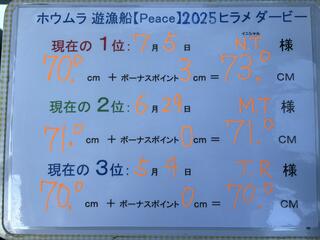 ホウムラ 遊漁船【Peace】2025ヒラメ ダービー
イニシャル
現在の 1位:7月5日 N.T 様
70.0cm + ボーナスポイント3cm=73.0CM
現在の 2位:6月29日 M.T 様
71.0cm + ボーナスポイント0cm=71.0CM
現在の 3位:5月4日 T.R 様
70.0cm + ボーナスポイント0cm=70.0CM